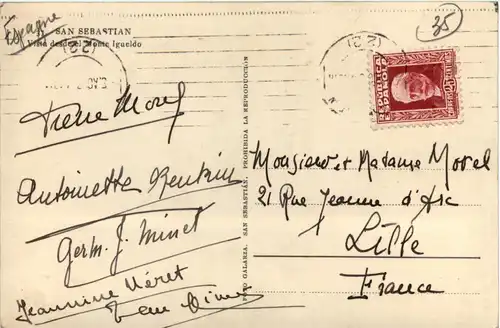 Espagne
35
SAN SEBASTIAN
Vista desde el Monte Igueldo
REPUBLICA
ESPAÑOLA
Morel
Antoinette
Germ. J. Minet
Jeannine Méret
FOTO GALARZA. SAN SEBASTIÁN. PROHIBIDA LA REPRODUCCIÓN
Monsieur et Madame Morel
21 Rue Jeanne d'Arc
Lille
France